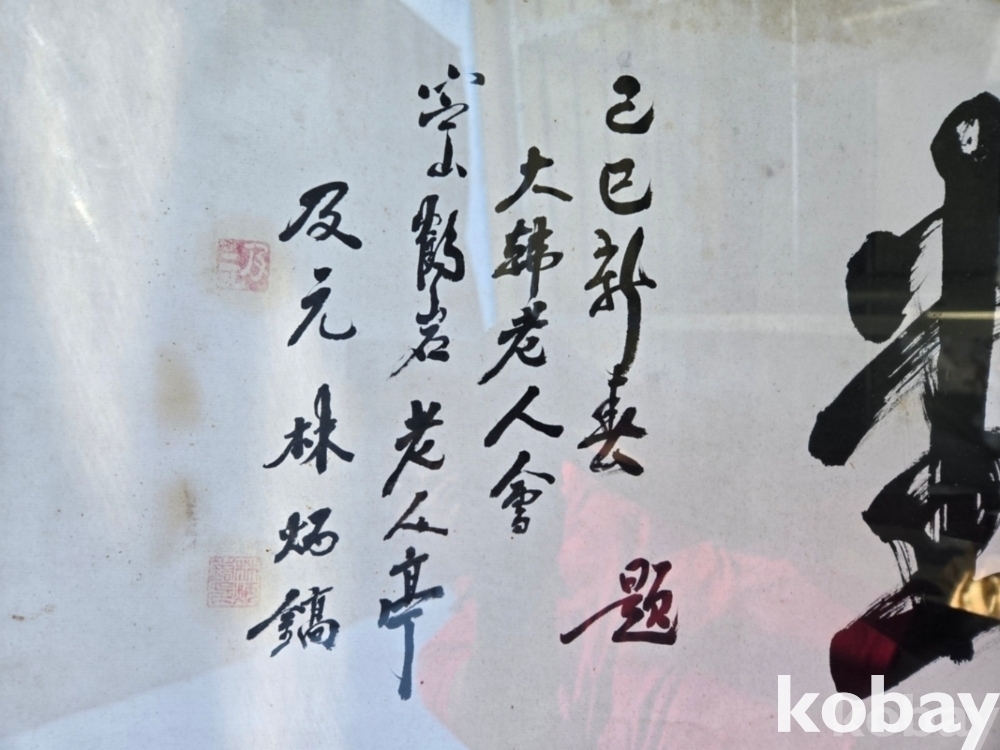 己巳新春 題
大韓老人會
鶴岩老人亭
及元 林炳鎬
kobay